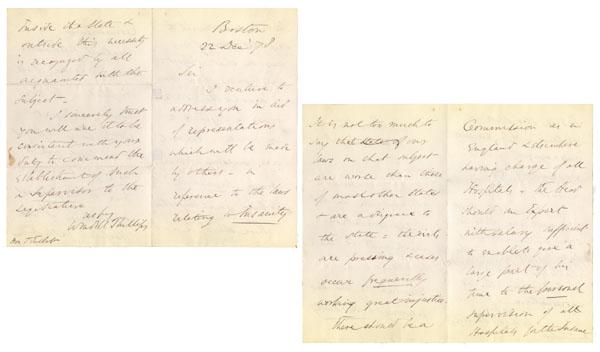 Boston
22 Dec '78
Sir
I venture to
address you in aid
of representations
which will be made
by others in
reference to the laws
relating to Insanity
It is not too much to
say that state of our
laws on that subject
are worse than those
of most other States
& are a disgrace to
the State – the evils
are pressing & cases
occur frequently
working great injustice.
There should be a
Commission as in
England & elsewhere
having charge of all
Hospitals – the head
should be an Expert
with salary sufficient
to enable to give a
large part of his
time to the personal
supervision of all
Hospitals for the Insane
Inside the State &
outside this necessity
is recognized by all
acquainted with the
subject –
I sincerely trust
you will see it to be
consistent with your
duty to commend the
establishment of such
a Supervisor to the
Legislature
Wendell Phillips